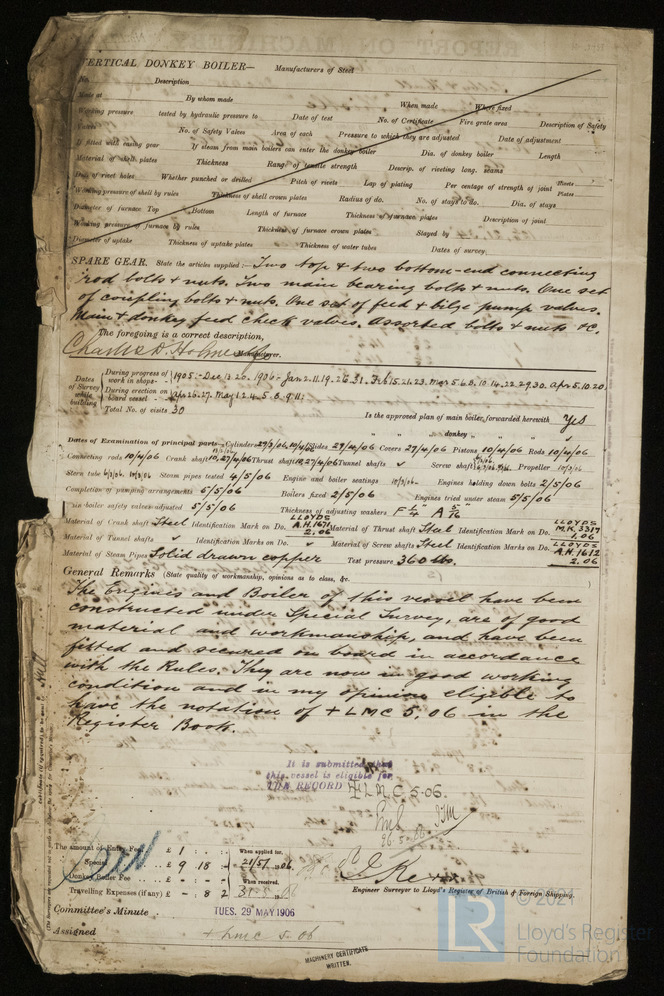 VERTICAL DONKEY BOILER— Manufacturers of Steel
No. Description
Made at By whom made When made Where fixed
Working pressure tested by hydraulic pressure to Date of test No. of Certificate Fire grate area Description of Safety
Valves No. of Safety Valves Area of each Pressure to which they are adjusted Date of adjustment
If fitted with easing gear If steam from main boilers can enter the donkey boiler Dia. of donkey boiler Length
Material of shell plates Thickness Range of tensile strength Descrip. of riveting long. seams
Dia. of rivet holes Whether punched or drilled Pitch of rivets Lap of plating Per centage of strength of joint Rivets Plates
Working pressure of shell by rules Thickness of shell crown plates Radius of do. No. of stays to do. Dia. of stays
Diameter of furnace Top Bottom Length of furnace Thickness of furnace plates Description of joint
Working pressure of furnace by rules Thickness of furnace crown plates Stayed by
Diameter of uptake Thickness of uptake plates Thickness of water tubes Dates of survey
SPARE GEAR. State the articles supplied:— Two top & two bottom-end connecting
rod bolts & nuts. Two main bearing bolts & nuts. One set
of coupling bolts & nuts. One set of feed & bilge pump valves.
Main & donkey feed check valves. Assorted bolts & nuts &c.
The foregoing is a correct description,
Charles D. Holme Manufacturer.
Dates of Survey while building
During progress of work in shops— 1905.- Dec 13. 26. 1906.- Jan 2. 11. 19. 26. 31. Feb 15. 21. 23. Mar 5. 6. 8. 10. 14. 22. 29. 30. Apr 5. 10. 20.
During erection on board vessel— Apr 26. 27. May 1. 2. 4. 5. 8. 9. 11.
Total No. of visits 30 Is the approved plan of main boiler forwarded herewith Yes
" " " donkey " " "
Dates of Examination of principal parts—Cylinders 27/3/06, 10/4/06 Slides 27/4/06 Covers 27/4/06 Pistons 10/4/06 Rods 10/4/06
Connecting rods 10/4/06 Crank shaft 10, 27/4/06 Thrust shaft 10, 27/4/06 Tunnel shafts Screw shaft Propeller 10/3/06
Stern tube 6/3/06. 10/3/06 Steam pipes tested 4/5/06 Engine and boiler seatings 10/3/06 Engines holding down bolts 2/5/06
Completion of pumping arrangements 5/5/06 Boilers fixed 2/5/06 Engines tried under steam 5/5/06
Main boiler safety valves adjusted 5/5/06 Thickness of adjusting washers F 1/4" A 5/16"
Material of Crank shaft Steel Identification Mark on Do. LLOYDS A.H. 1671 2.06 Material of Thrust shaft Steel Identification Mark on Do. LLOYDS M.K. 3317 1.06
Material of Tunnel shafts Identification Marks on Do. Material of Screw shafts Steel Identification Marks on Do. LLOYDS A.H. 1612 2.06
Material of Steam Pipes Solid drawn copper Test pressure 360 lbs.
General Remarks (State quality of workmanship, opinions as to class, &c.
The Engines and Boiler of this vessel have been
constructed under Special Survey, are of good
material and workmanship, and have been
fitted and secured on board in accordance
with the Rules. They are now in good working
condition and in my opinion eligible to
have the notation of + LMC 5,06 in the
Register Book.
It is submitted that
this vessel is eligible for
THE RECORD + LMC 5-06.
26.5.06
The amount of Entry Fee £ 1 : : When applied for,
Special £ 9 . 18 : 21/5/1906
Donkey Boiler Fee £ - : - : - When received,
Travelling Expenses (if any) £ - : 8 2
Engineer Surveyor to Lloyd's Register of British & Foreign Shipping.
Committee's Minute TUES. 29 MAY 1906
Assigned + LMC 5.06
MACHINERY CERTIFICATE
WRITTEN.
Hull
© 2021
LR
Lloyd's Register
Foundation